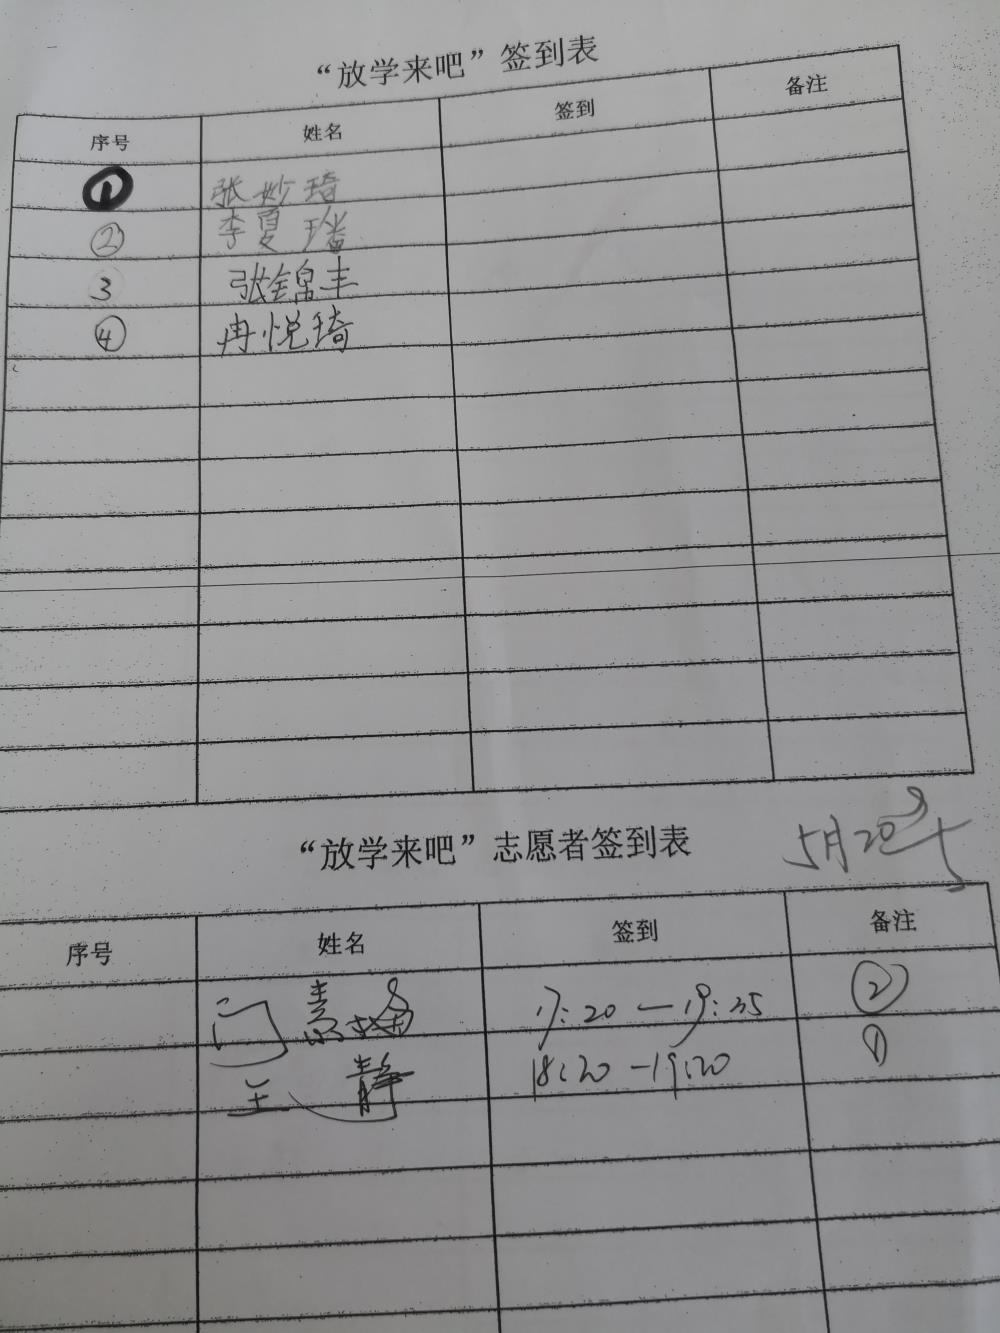 “放学来吧”签到表
序号 姓名 签到 备注
① 张妙琦
② 李夏
3 张锦丰
④ 冉悦琦
“放学来吧”志愿者签到表
5月20
序号 姓名 签到 备注
闫 17:20 — 19:25 ②
王静 18:20 - 19:20 ①